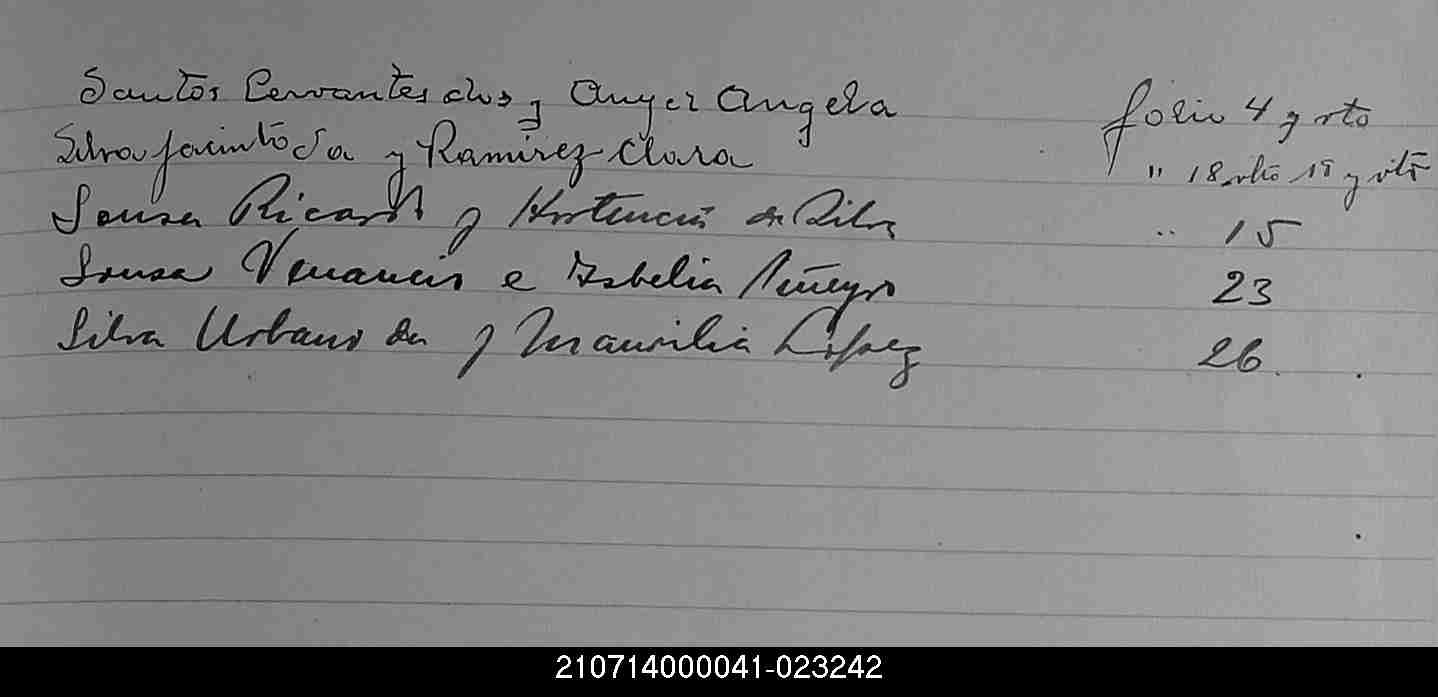 Santos Cervantes dos y Anger Angela folio 4 y vto
Silva Jacinto Da y Ramirez Clara " 18 vto 19 y vto
Sousa Ricardo y Hortencia da Silva " 15
Sousa Venancio e Isbelia Piñeyro 23
Silva Urbano da y Maurilia López 26.
210714000041-023242